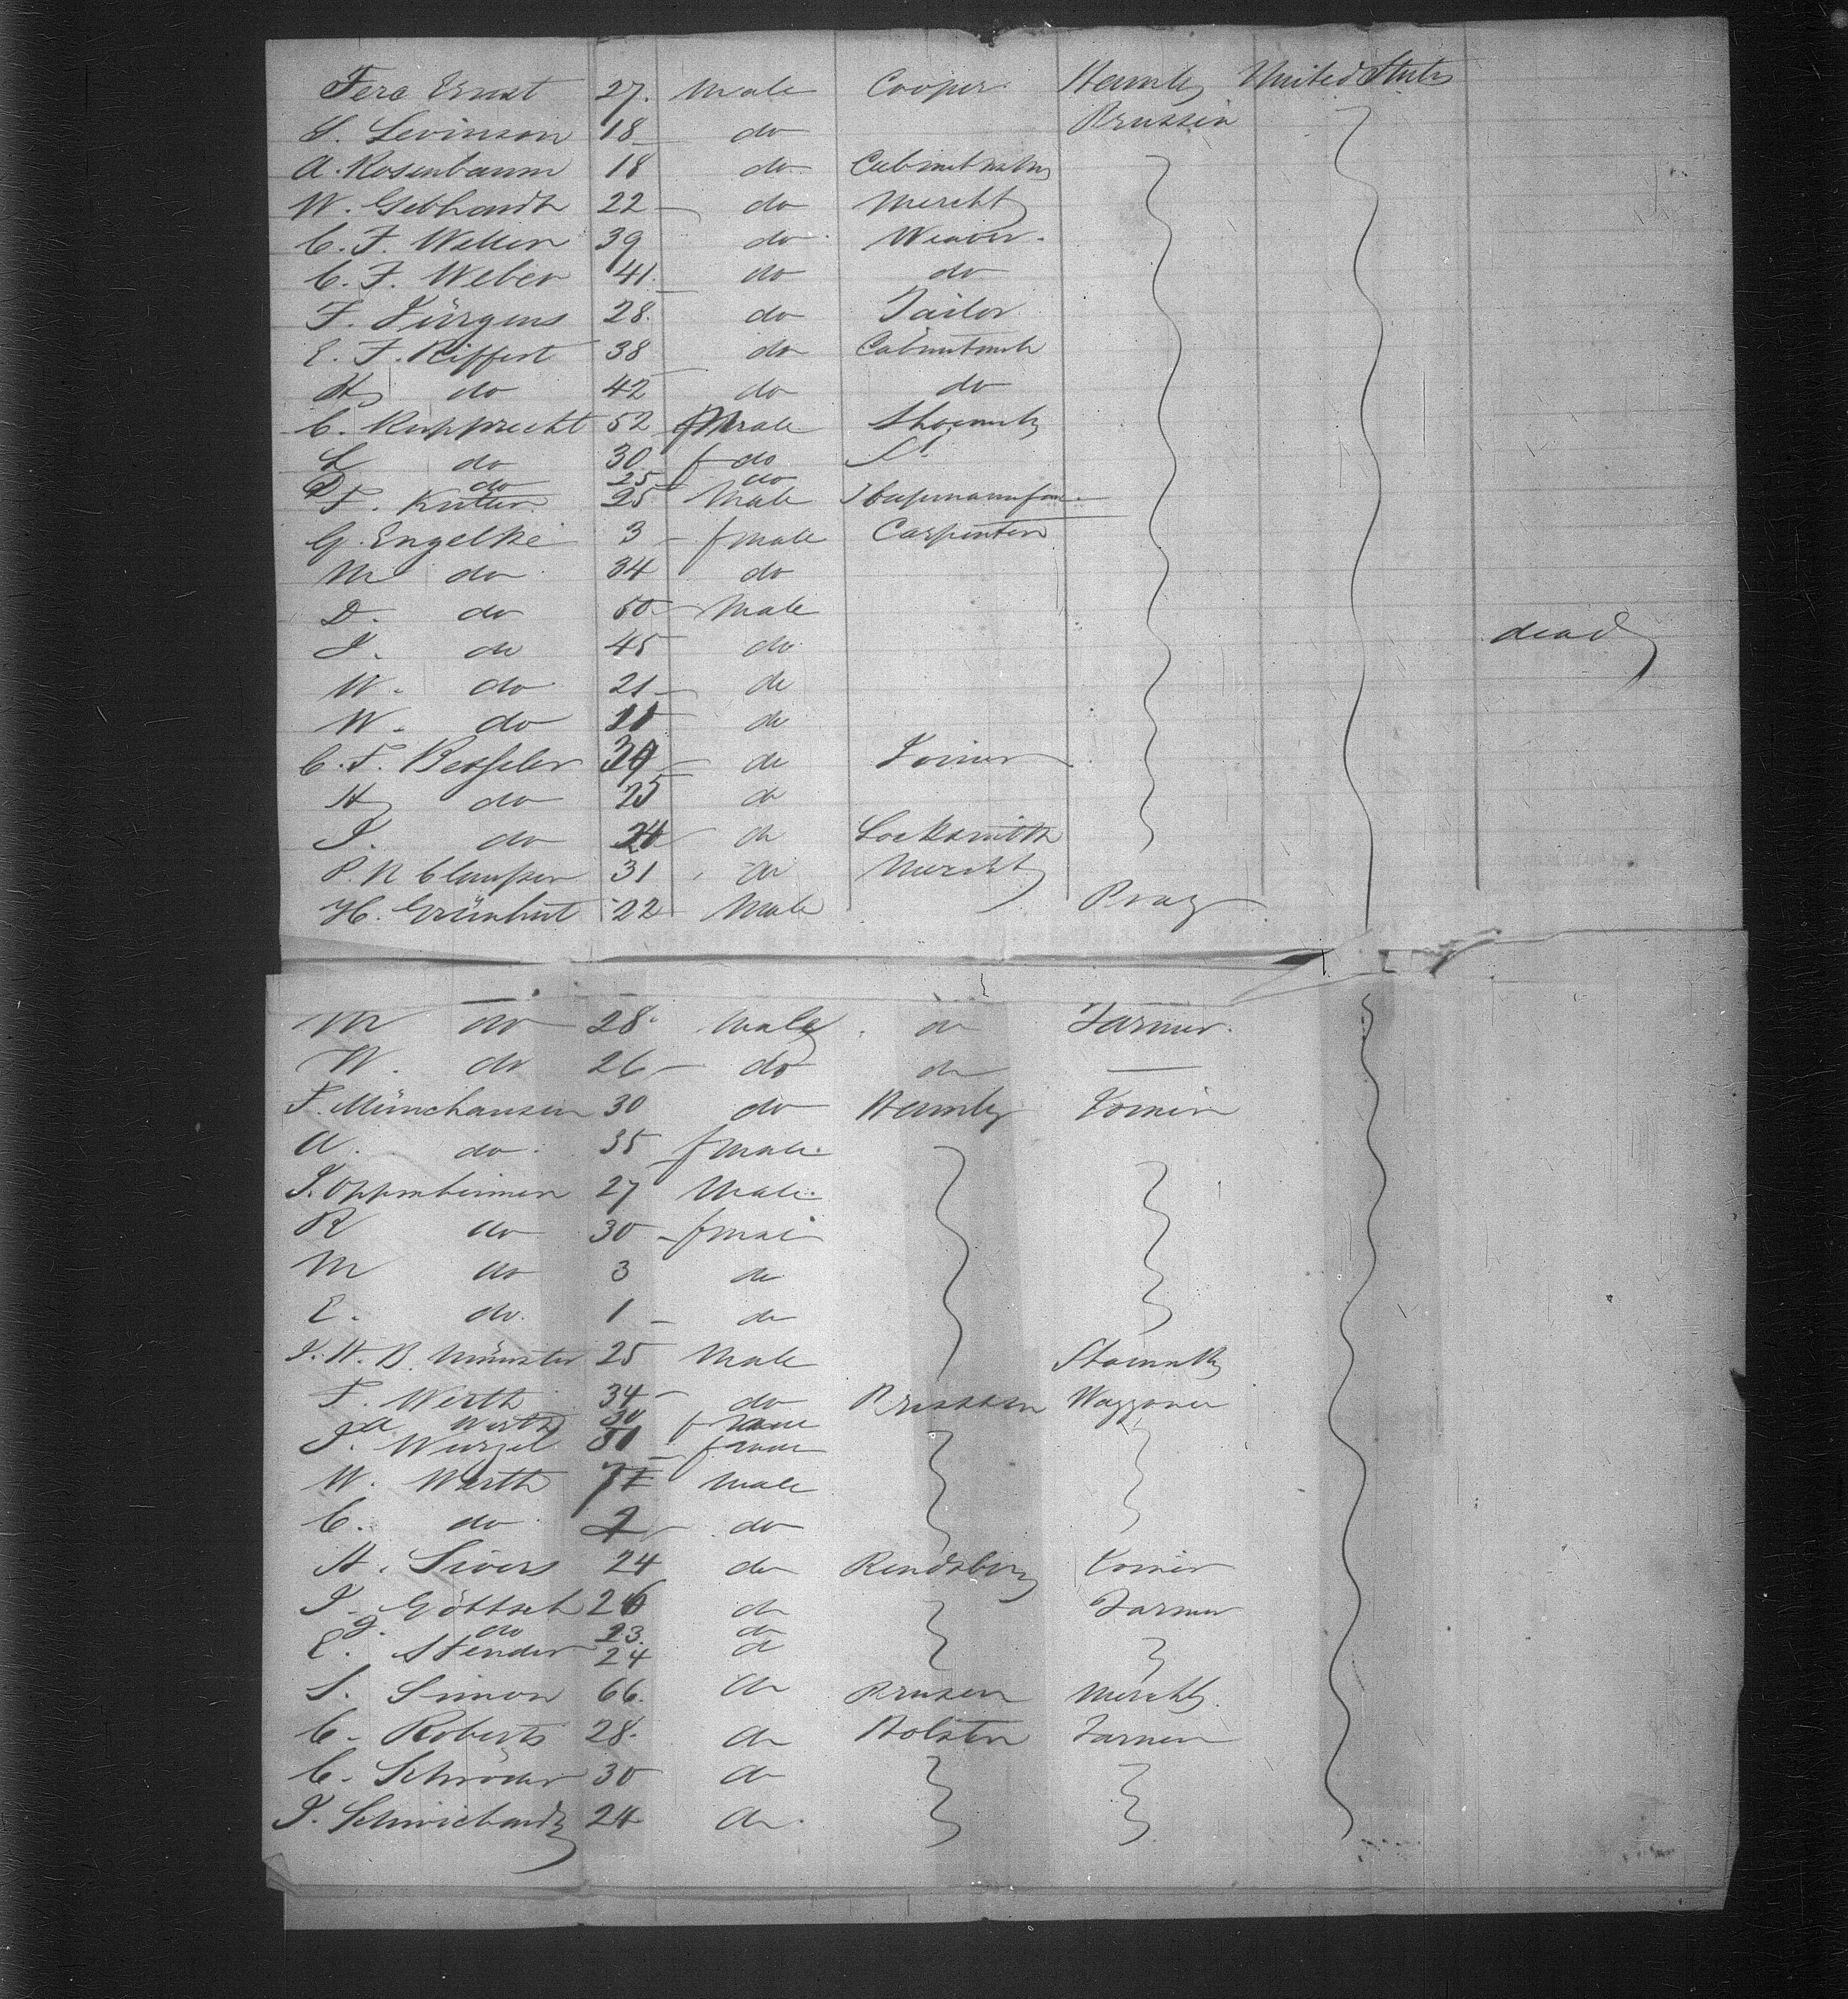 Ferd Ernst 27. Male Cooper Hambg United States
S. Levinson 18 do Prussia
A. Rosenbaum 18 do Cabinetmakr
W. Gebhardt 22 do Mercht
C. F. Weller 39 do Weaver.
C. F. Weber 41. do do
F. Jürgens 28. do Tailor
E. F. Riffert 38 do Cabinetmk
H do 42 do do
C. Rupprecht 52 Male Shoemk
L do 30 f do
D do 25 do
F. 25 Male
G. Engelke 3 fmale Carpenter
M do 34 do
D. do 50 Male
J. do 45 do dead
W. do 21 do
W. do 11 do
C. F. Bessler do Joiner
H do 25 do
J. do 24 do Locksmith
P. N. Claussen 31 do Mercht
H. Grünhut 22 Male Prag
M do 28 Male do Farmer.
W. do 26 do do —
F. Münchausen 30 do Hambg Joiner
A. do. 35 fmale.
J. Oppenheimer 27 Male.
R do 30 fmale
M do 3 do
E. do. 1 do
J. H. B. Münster 25 Male Shoemk
F. Werth 34 do Prussien Waggoner
Werth 30 fmale
J. Wurzel fmale
W. Werth Male
C. do do
H. Sivers 24 do Rendsburg Joiner
J. Göttsch 26 do Farmer
J. do 23. do
E. Stender 24 do
S. Simon 66. do Prusen Mercht.
C. Roberts 28. do Holstn Farmer
C. Schröder 30 do
J. 24 do.